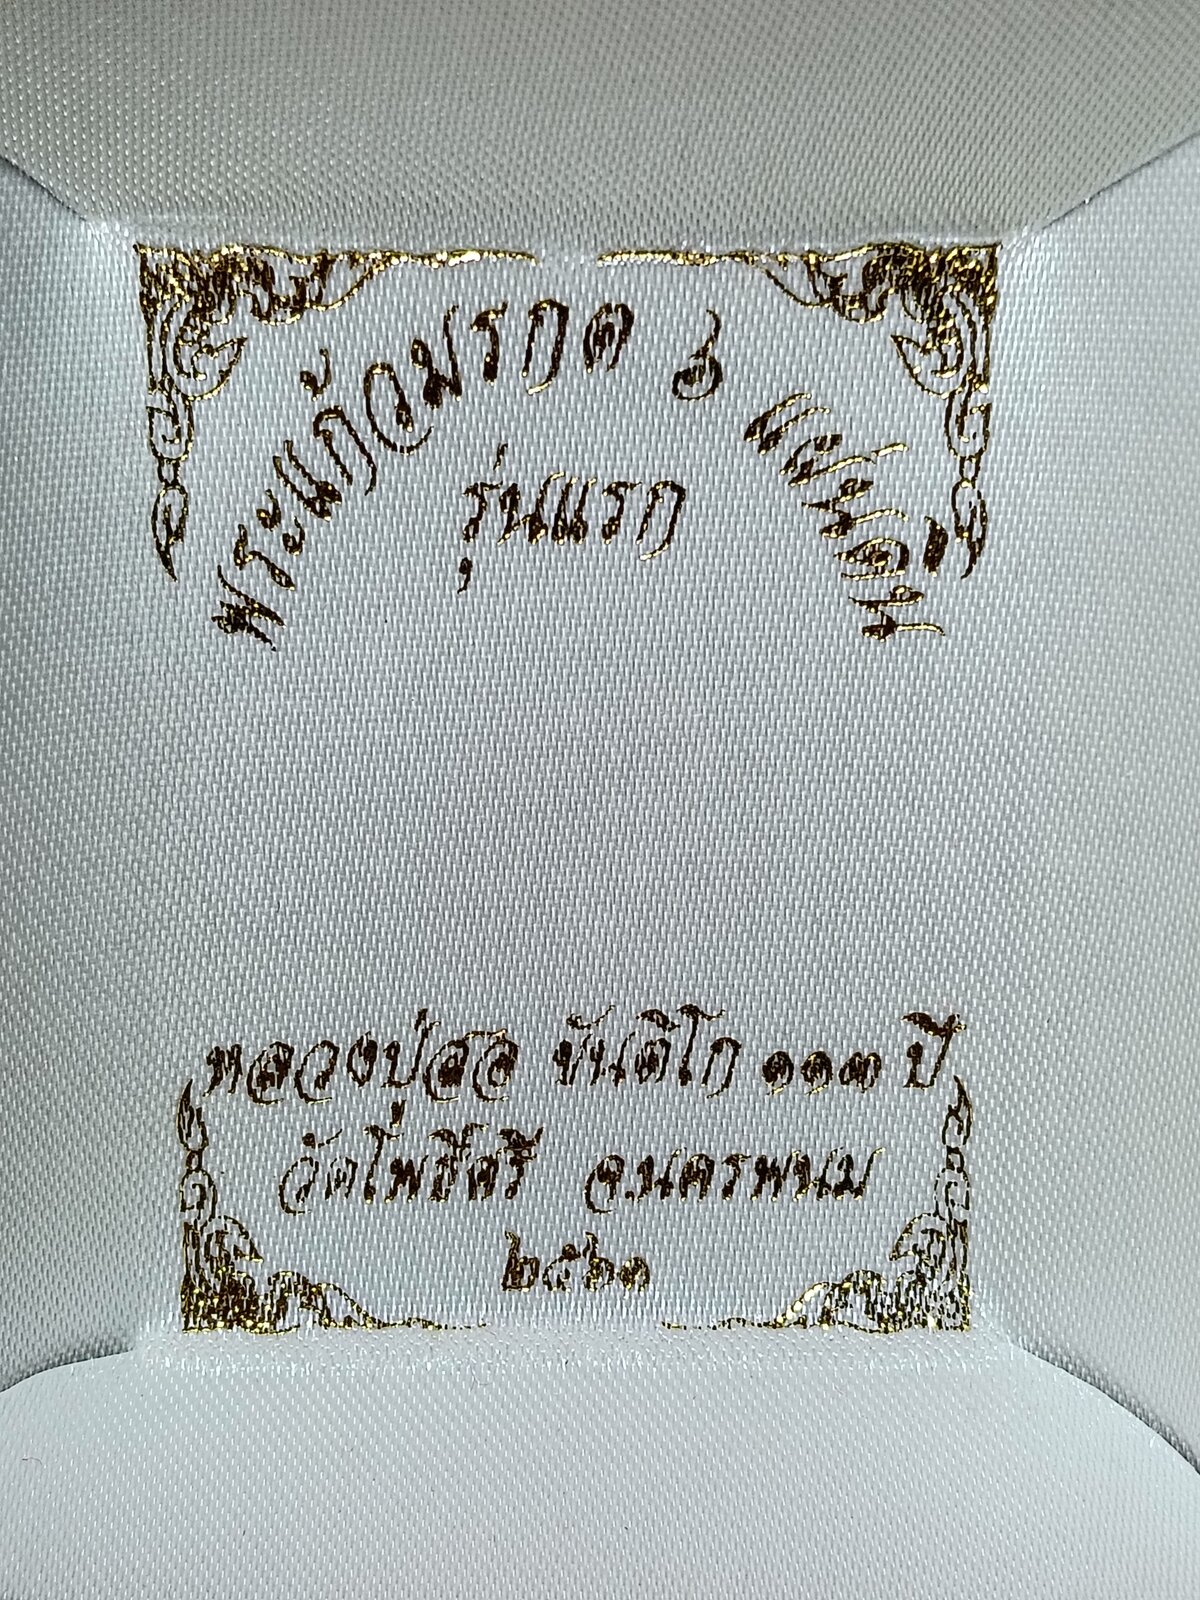 พระแก้วมรกต ๖ แผ่นดิน
รุ่นแรก
หลวงปู่สอ ขันติโก ๑๑๓ ปี
วัดโพธิ์ศรี จ.นครพนม
๒๕๖๑